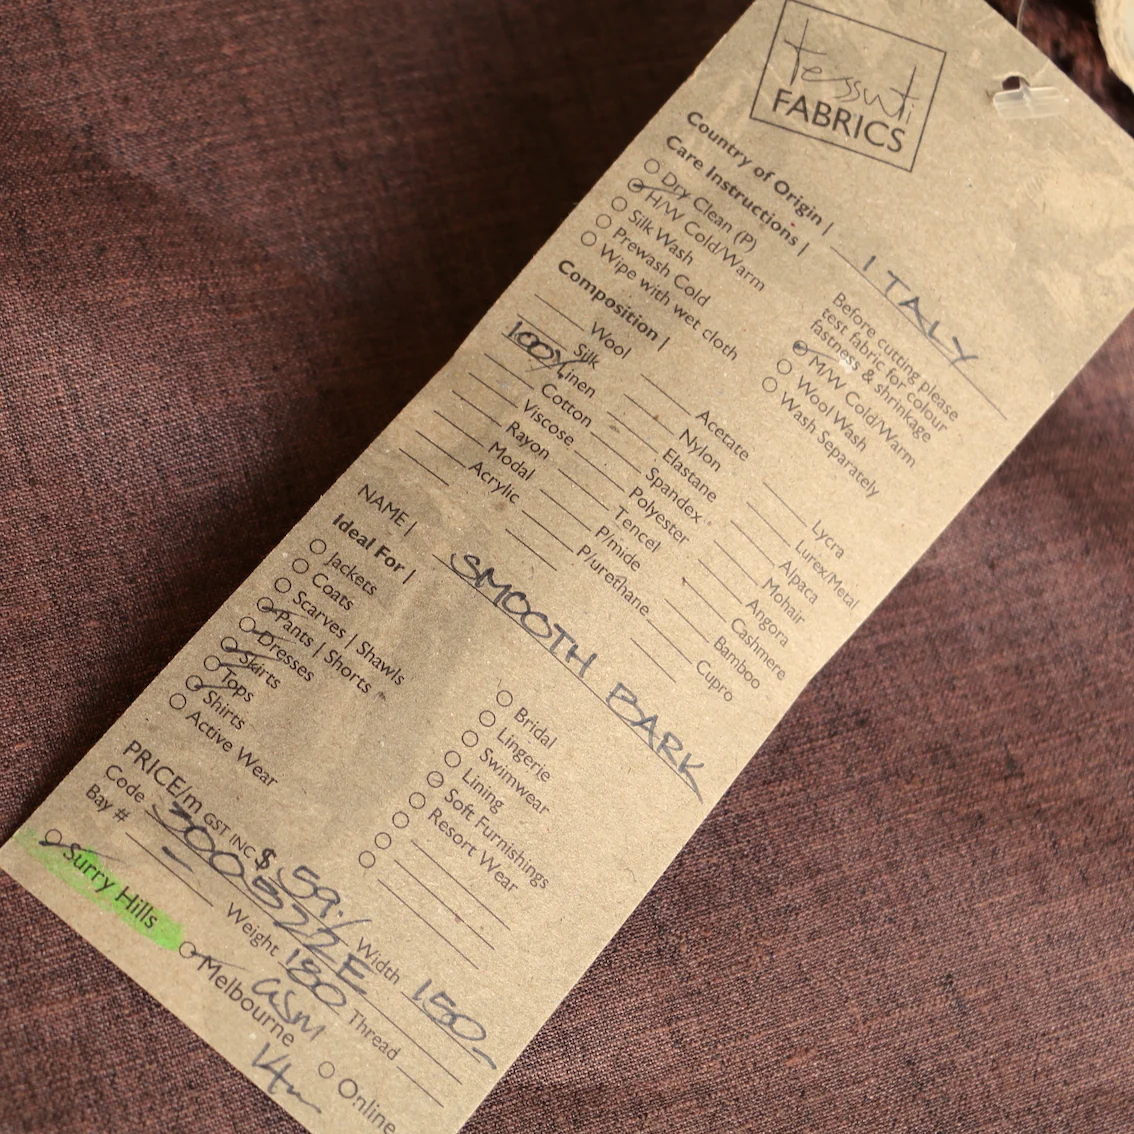 tessuti
FABRICS
Country of Origin | ITALY
Care Instructions |
Dry Clean (P)
H/W Cold/Warm
Silk Wash
Prewash Cold
Wipe with wet cloth
Before cutting please
test fabric for colour
fastness & shrinkage
M/W Cold/Warm
Wool Wash
Wash Separately
Composition |
Wool
Silk
100% Linen
Cotton
Viscose
Rayon
Modal
Acrylic
Acetate
Nylon
Elastane
Spandex
Polyester
Tencel
P/mide
P/urethane
Lycra
Lurex/Metal
Alpaca
Mohair
Angora
Cashmere
Bamboo
Cupro
NAME | SMOOTH BARK
Ideal For |
Jackets
Coats
Scarves | Shawls
Pants | Shorts
Dresses
Skirts
Tops
Shirts
Active Wear
Bridal
Lingerie
Swimwear
Lining
Soft Furnishings
Resort Wear
PRICE/m GST INC $ 59./ Width 150
Code 300522E
Bay # Weight 180 GSM Thread
Surry Hills Melbourne Online
14m